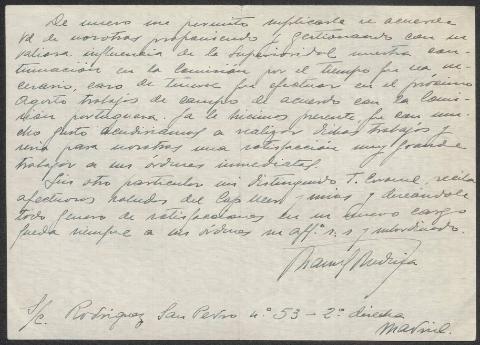 De nuevo me permito suplicarle se acuerde
Vd de nosotros proponiendo y gestionando con su
valiosa influencia de la Superioridad nuestra con-
tinuación en la Comisión por el tiempo que sea ne-
cesario, caso de tenerse que efectuar en el próximo
Agosto trabajos de campo de acuerdo con la Comi-
sión portuguesa. Ya le hicimos presente que con mu-
cho gusto acudiríamos a realizar dichos trabajos y
sería para nosotros una satisfacción muy grande
trabajar a sus órdenes inmediatas.
Sin otro particular mi distinguido T. Coronel, reciba
afectuosos saludos del Cap y míos y deseándole
todo género de satisfacciones en su nuevo cargo
queda siempre a sus órdenes su affº s. s y subordinado.
Manuel
S/c. Rodriguez San Pedro nº 53 - 2º derecha
Madrid.